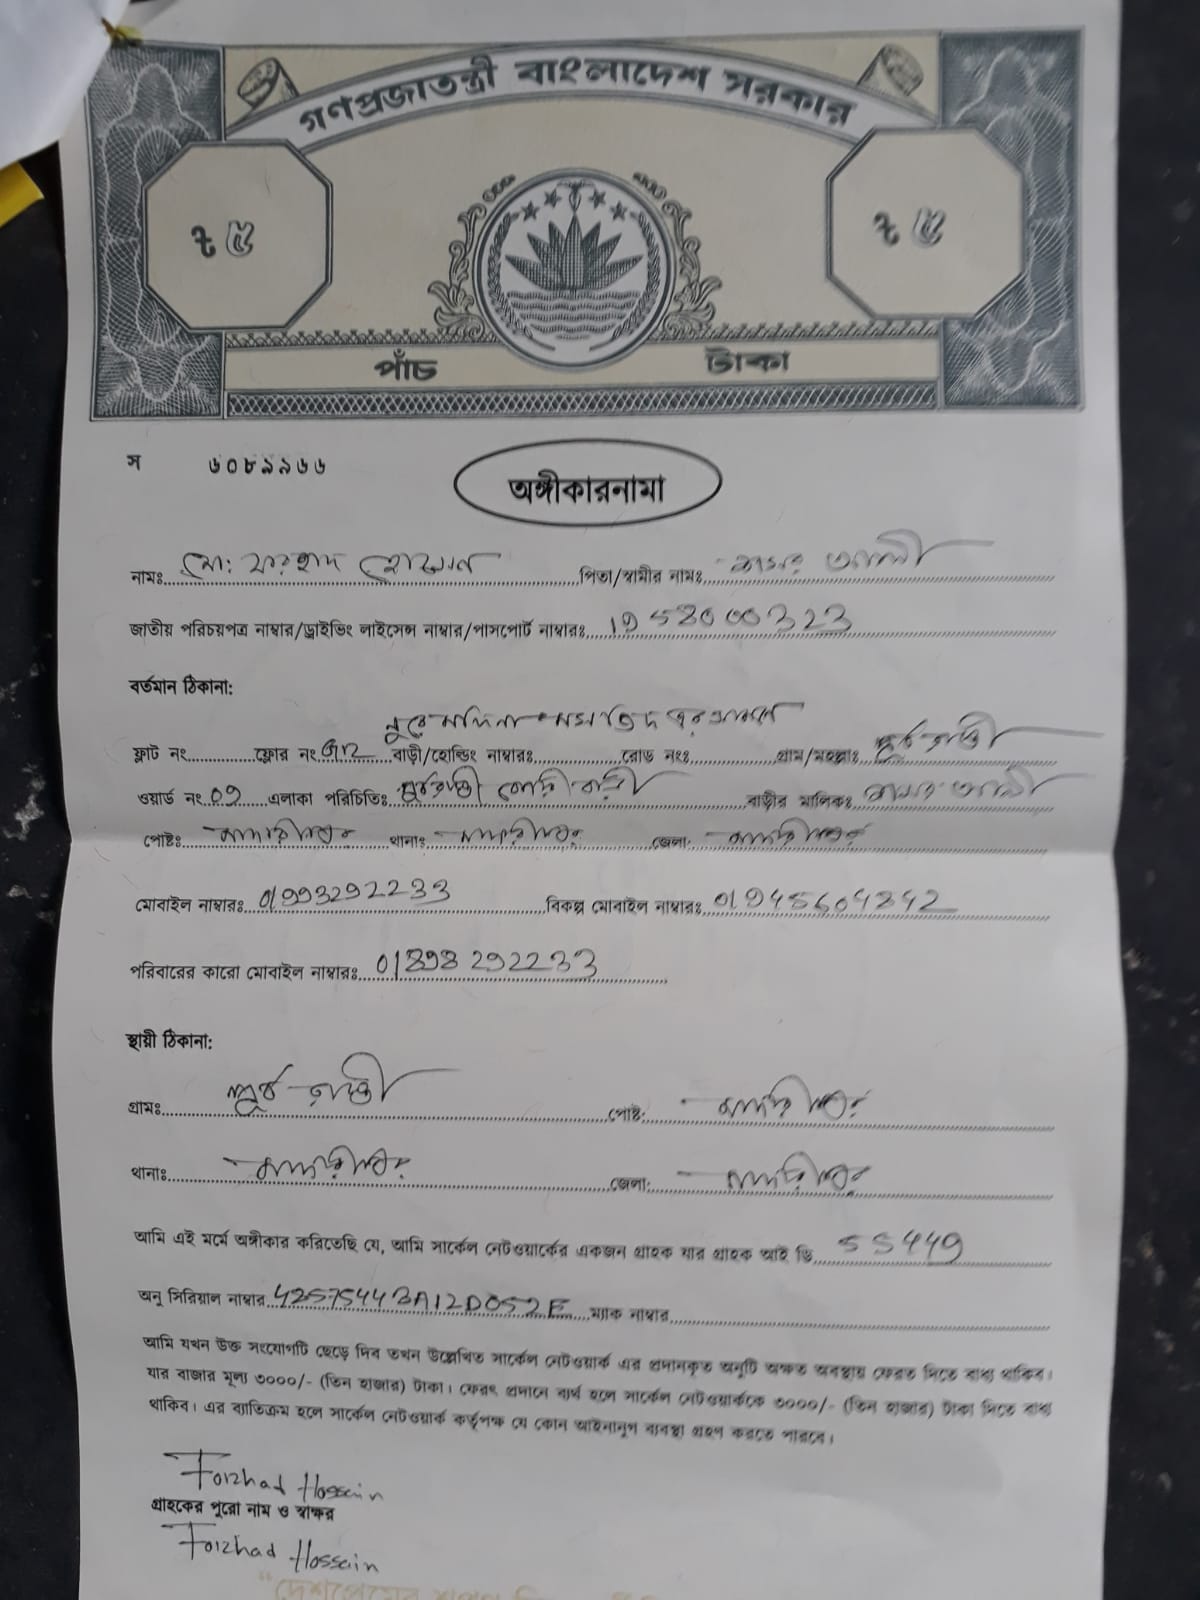 গণপ্রজাতন্ত্রী বাংলাদেশ সরকার
৳ ৫ ৳ ৫
পাঁচ টাকা
স ৬০৮৯৯৬৬
অঙ্গীকারনামা
নামঃ মো: ফরহাদ হোসেন পিতা/স্বামীর নামঃ আলী
জাতীয় পরিচয়পত্র নাম্বার/ড্রাইভিং লাইসেন্স নাম্বার/পাসপোর্ট নাম্বারঃ 1958000323
বর্তমান ঠিকানা:
নুরে মদিনা মসজিদ
ফ্লাট নং ফ্লোর নং বাড়ী/হোল্ডিং নাম্বারঃ রোড নংঃ গ্রাম/মহল্লাঃ
ওয়ার্ড নং 09 এলাকা পরিচিতিঃ বাড়ীর মালিকঃ আলী
পোষ্টঃ থানাঃ জেলা:
মোবাইল নাম্বারঃ 01993292233 বিকল্প মোবাইল নাম্বারঃ 01945604842
পরিবারের কারো মোবাইল নাম্বারঃ 01898292233
স্থায়ী ঠিকানা:
গ্রামঃ পোষ্ট:
থানাঃ জেলা:
আমি এই মর্মে অঙ্গীকার করিতেছি যে, আমি সার্কেল নেটওয়ার্কের একজন গ্রাহক যার গ্রাহক আই ডি 55449
অনু সিরিয়াল নাম্বার 48575443A12D052E ম্যাক নাম্বার
আমি যখন উক্ত সংযোগটি ছেড়ে দিব তখন উল্লেখিত সার্কেল নেটওয়ার্ক এর প্রদানকৃত অনুটি অক্ষত অবস্থায় ফেরত দিতে বাধ্য থাকিব।
যার বাজার মূল্য ৩০০০/- (তিন হাজার) টাকা। ফেরৎ প্রদানে ব্যর্থ হলে সার্কেল নেটওয়ার্ককে ৩০০০/- (তিন হাজার) টাকা দিতে বাধ্য
থাকিব। এর ব্যতিক্রম হলে সার্কেল নেটওয়ার্ক কর্তৃপক্ষ যে কোন আইনানুগ ব্যবস্থা গ্রহণ করতে পারবে।
Forhad Hossain
গ্রাহকের পুরো নাম ও স্বাক্ষর
Forhad Hossain